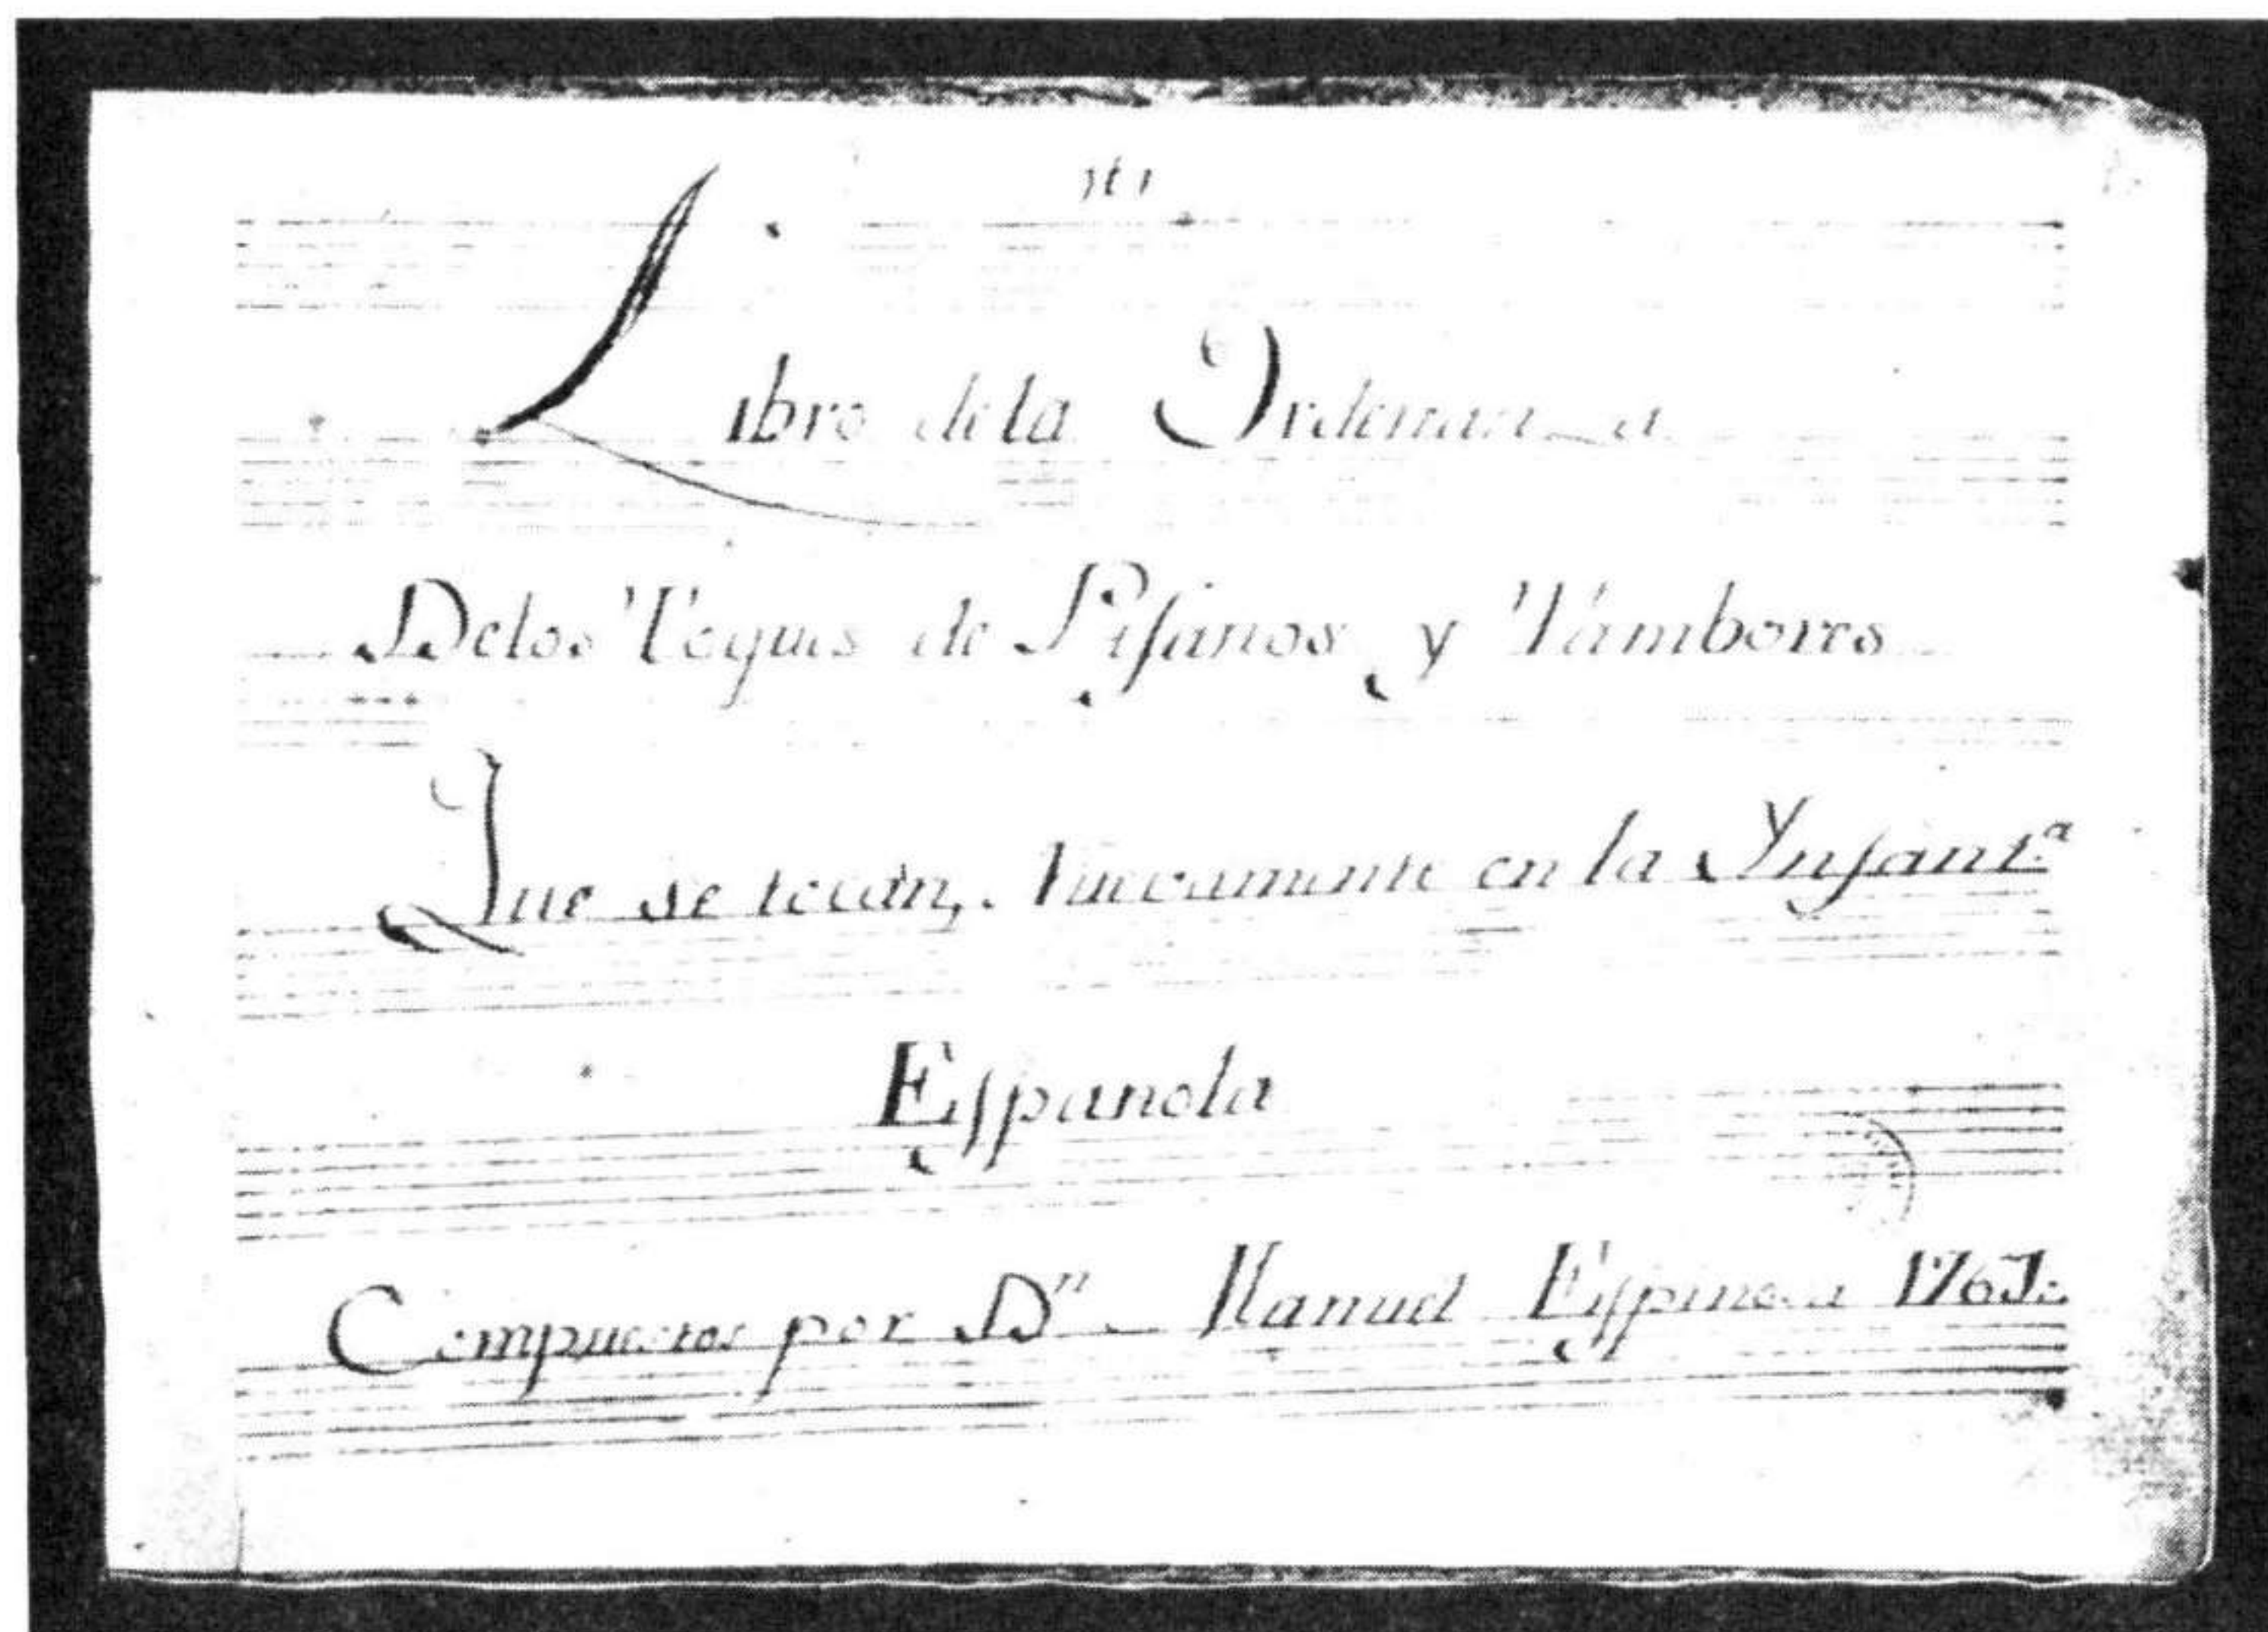 Libro de la Ordenanza
De los Toques de Pifanos y Tambores
Que se tocan, Nuevamente en la Ynfant.ª
Española
Compuestos por Dⁿ Manuel Espinosa 1761: